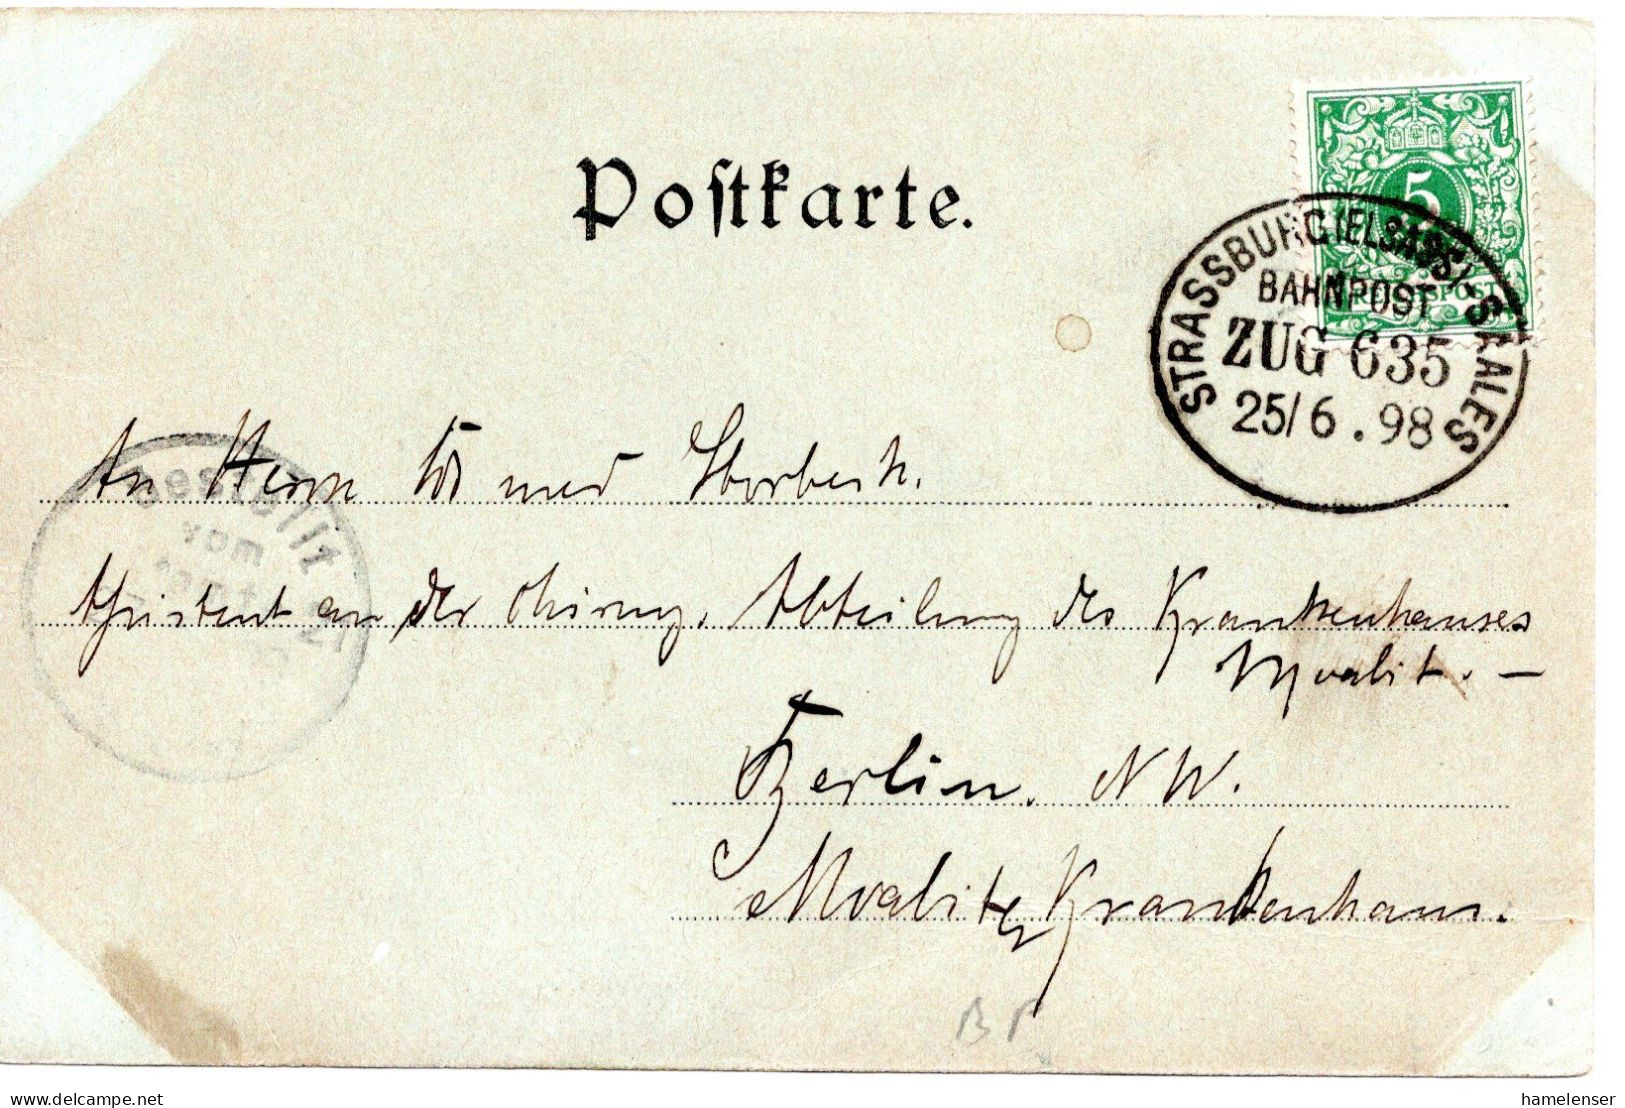 Postkarte.
5
REICHSPOST
STRASSBURG (ELSASS)-SAALES
BAHNPOST
ZUG 635
25/6.98
Bestellt
vom
Postamte
An Herrn Dr med Storbeck.
Assistent an der chirurg. Abteilung des Krankenhauses
Moabit. —
Berlin. NW.
Moabiter Krankenhaus.
BP
delcampe.net
hamelenser